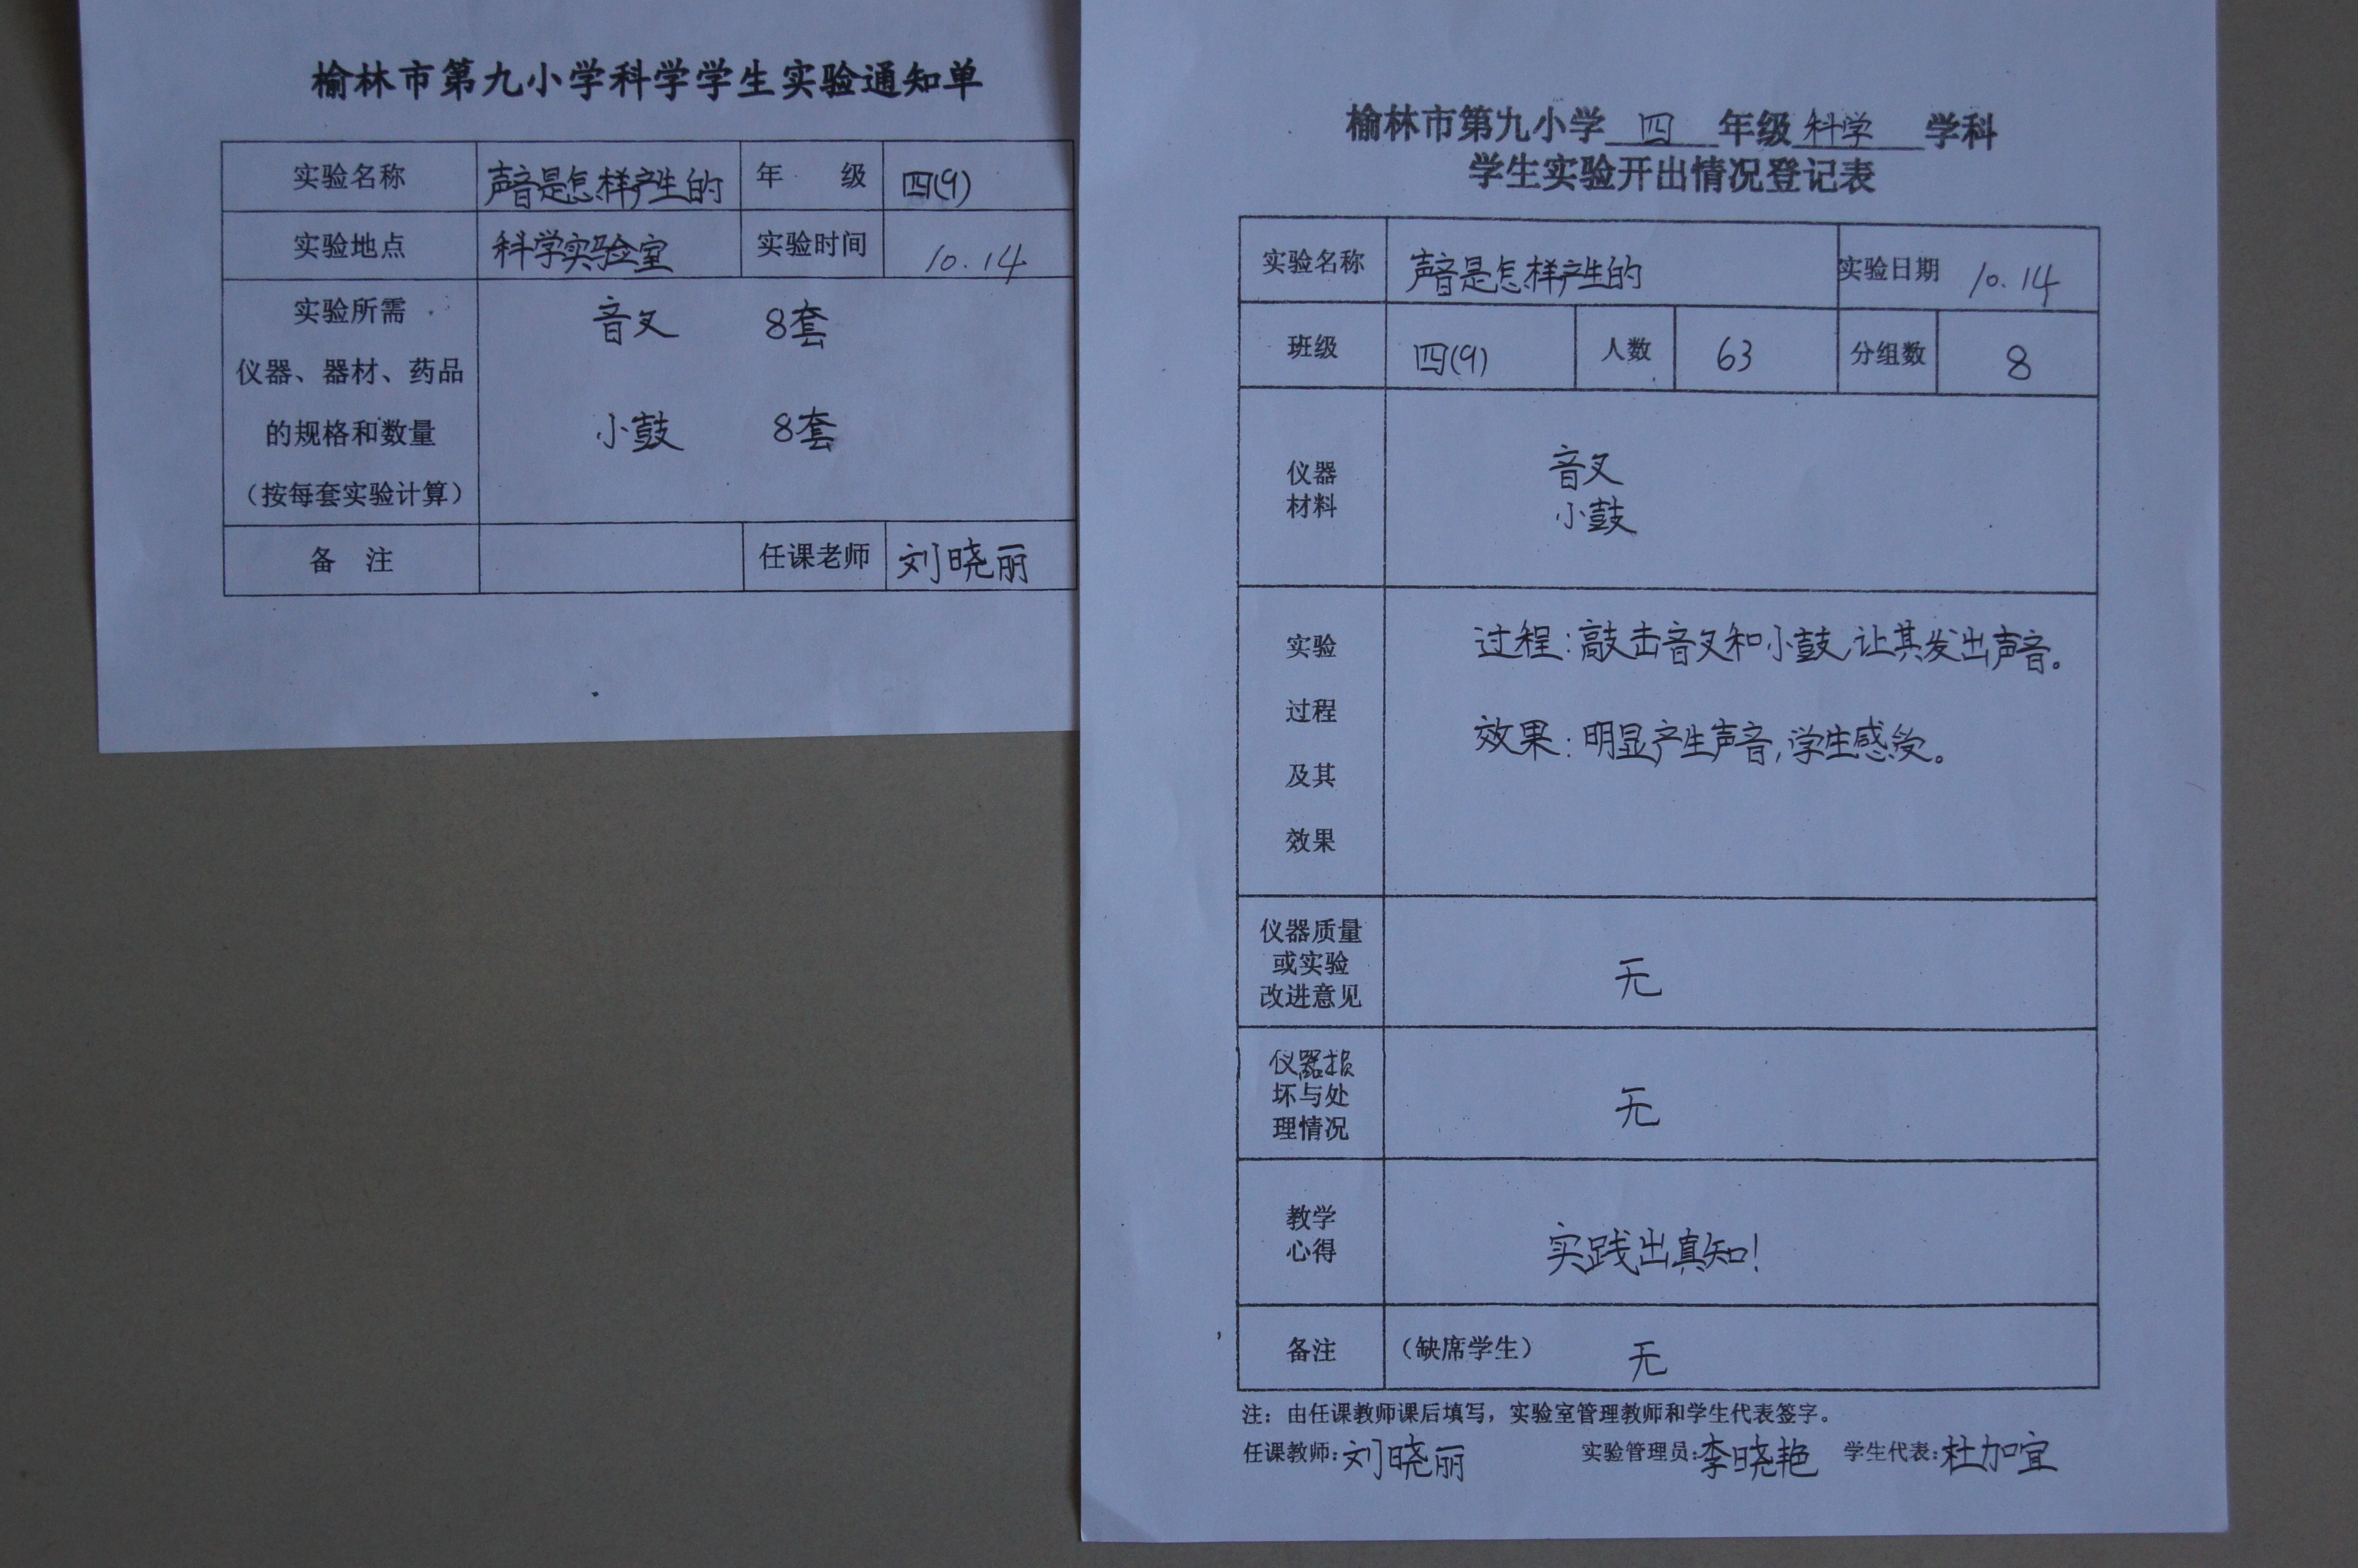 榆林市第九小学科学学生实验通知单
实验名称 声音是怎样产生的 年 级 四(9)
实验地点 科学实验室 实验时间 10.14
实验所需
仪器、器材、药品
的规格和数量
(按每套实验计算)
音叉 8套
小鼓 8套
备 注 任课老师 刘晓丽
榆林市第九小学 四 年级 科学 学科
学生实验开出情况登记表
实验名称 声音是怎样产生的 实验日期 10.14
班级 四(9) 人数 63 分组数 8
仪器
材料
音叉
小鼓
实验
过程
及其
效果
过程:敲击音叉和小鼓,让其发出声音。
效果:明显产生声音,学生感受。
仪器质量
或实验
改进意见
无
仪器损
坏与处
理情况
无
教学
心得
实践出真知!
备注 (缺席学生) 无
注:由任课教师课后填写,实验室管理教师和学生代表签字。
任课教师:刘晓丽 实验管理员:李晓艳 学生代表:杜加宜